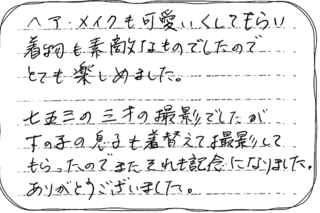 ヘア・メイクも可愛いくしてもらい
着物も素敵なものでしたので
とても楽しめました。
七五三の三才の撮影でしたが
下の子の息子も着替えて撮影して
もらったのでまたそれも記念になりました。
ありがとうございました。